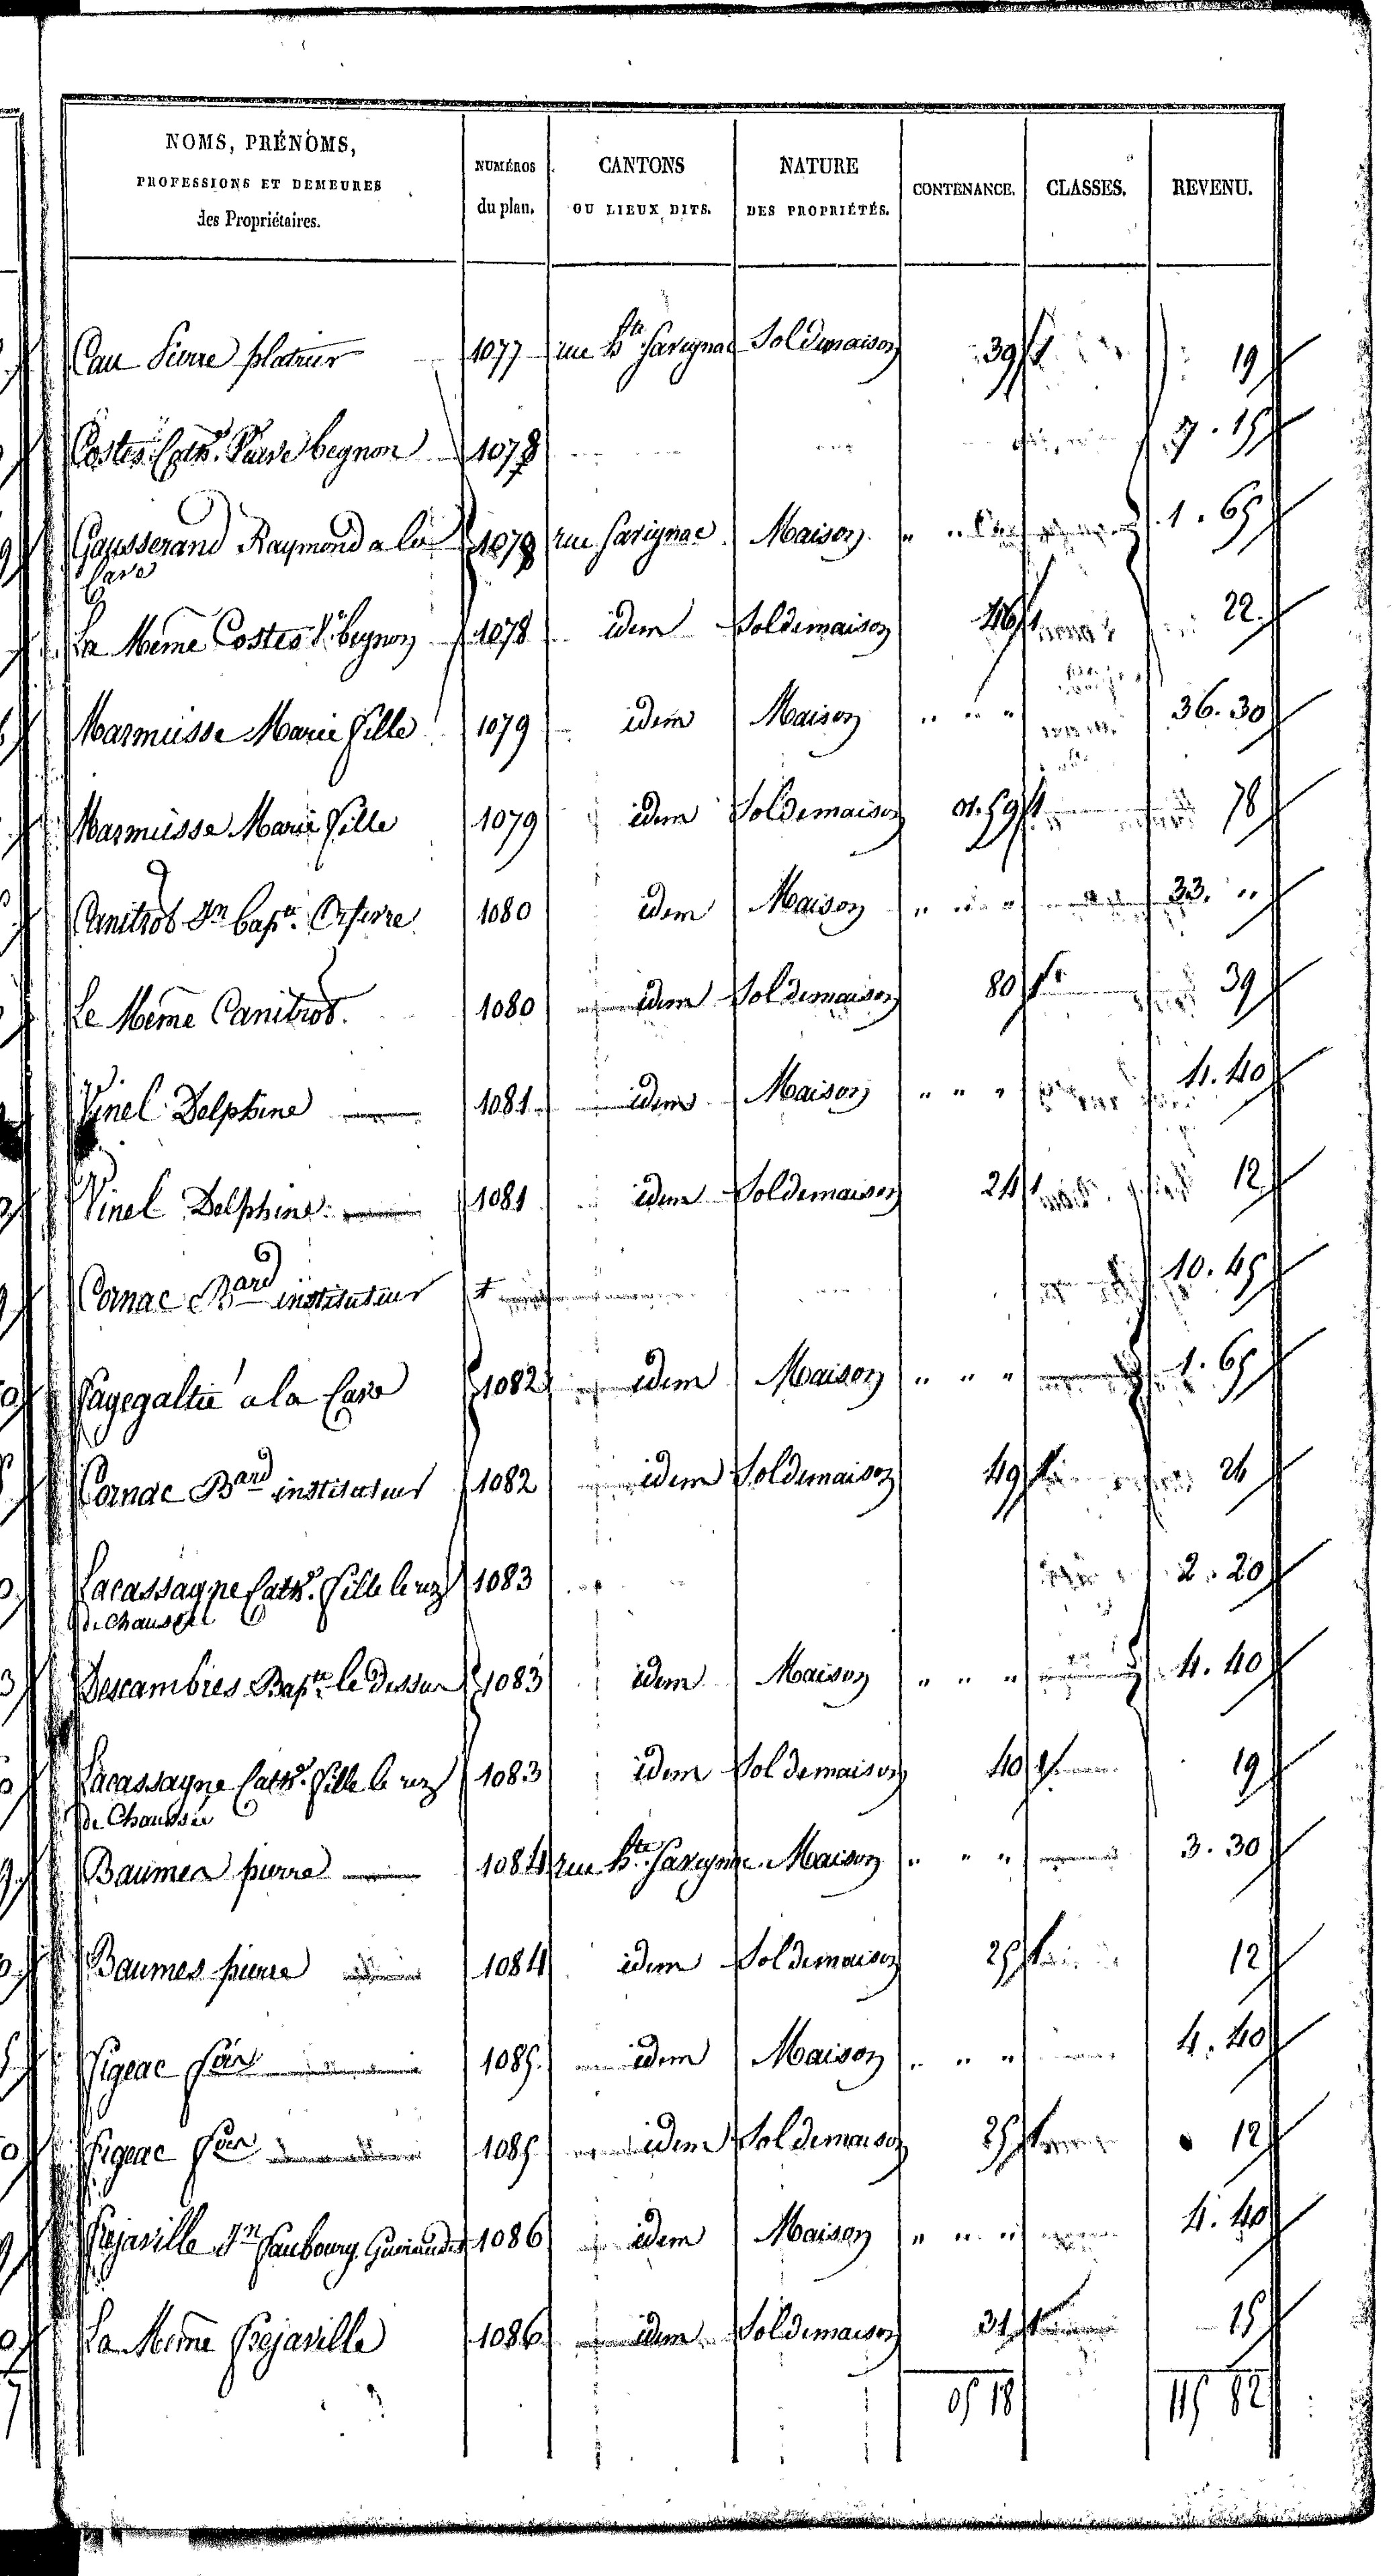 NOMS, PRÉNOMS, PROFESSIONS ET DEMEURES des Propriétaires. NUMÉROS du plan. CANTONS OU LIEUX DITS. NATURE DES PROPRIÉTÉS. CONTENANCE. CLASSES. REVENU.
Cau Pierre platrier 1077 rue hte Savignac Sol de maison 39 1 19
Costes Cathe. Veuve begnon 1078 7. 15
Gausserand Raymond a la 1079 rue Savignac Maison " " 1. 65
Cave
La Même Costes Ve begnon 1078 idem Sol de maison 46 1 22
Marmusse Marie fille 1079 idem Maison " " " 36. 30
Marmusse Marie fille 1079 idem Sol de maison 01. 59 1 78
Canitrot Jn bapte. Orfevre 1080 idem Maison " " " 33. "
Le Même Canitrot. 1080 idem Sol de maison 80 1 39
Vinel Delphine 1081 idem Maison " " " 4. 40
Vinel Delphine 1081 idem Sol de maison 24 1 12
Cornac Bard instituteur + 10. 45
Fagegaltié a la Cave 1082 idem Maison " " " 1. 65
Cornac Bard instituteur 1082 idem Sol de maison 49 1 24
Lacassagne Cathe. fille le rez 1083 2. 20
de Chaussée
Descambres Bapte. le dessus 1083 idem Maison " " " 4. 40
Lacassagne Cathe. fille le rez 1083 idem Sol de maison 40 1 19
de Chaussée
Baumes pierre 1084 rue hte Savignac Maison " " " 3. 30
Baumes pierre 1084 idem Sol de maison 25 1 12
Figeac fois 1085 idem Maison " " " 4. 40
Figeac fois 1085 idem Sol de maison 25 1 12
Frejaville Jn faubourg 1086 idem Maison " " " 4. 40
La Même Frejaville 1086 idem Sol de maison 31 1 15
05 18 115 82